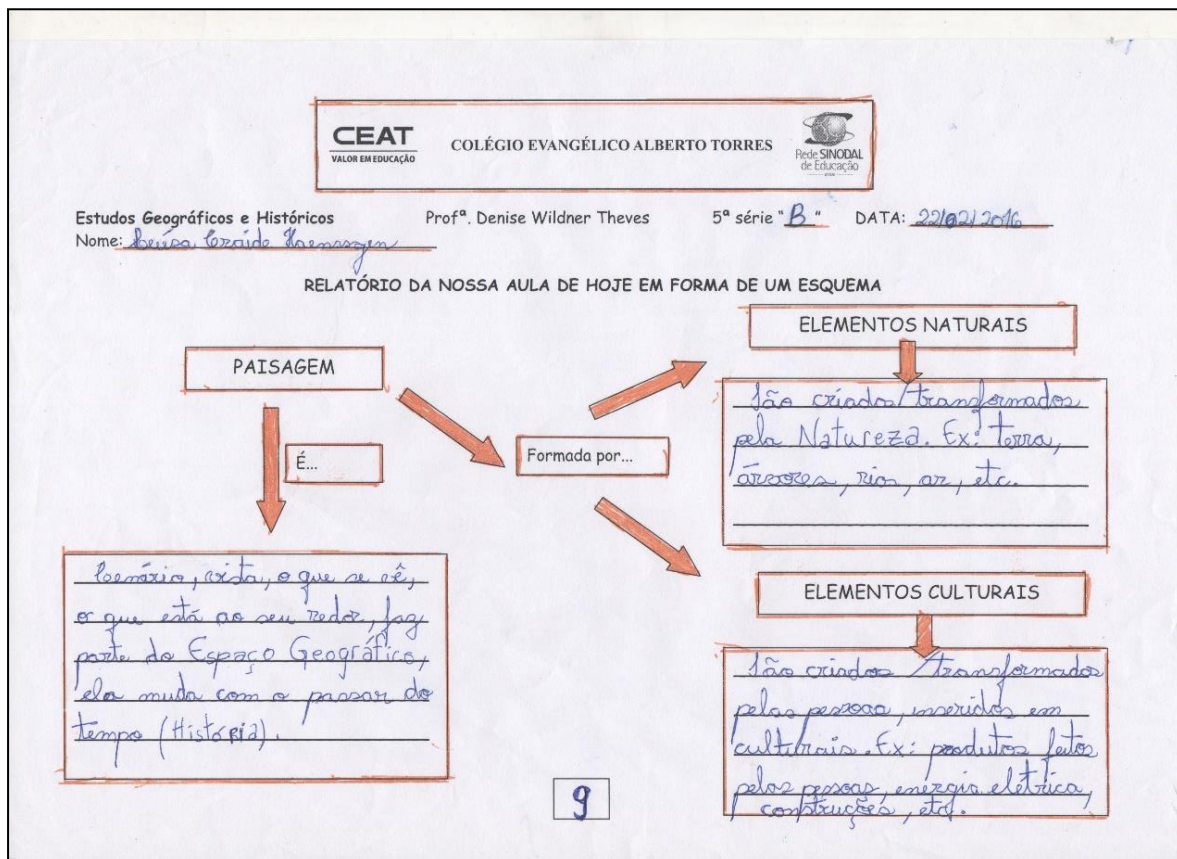 CEAT
VALOR EM EDUCAÇÃO
COLÉGIO EVANGÉLICO ALBERTO TORRES
Rede SINODAL
de Educação
Estudos Geográficos e Históricos Profª. Denise Wildner Theves 5ª série "B" DATA: 22/02/2016
Nome:
RELATÓRIO DA NOSSA AULA DE HOJE EM FORMA DE UM ESQUEMA
PAISAGEM
É...
Cenário, vista, o que se vê,
o que está ao seu redor, faz
parte do Espaço Geográfico,
ela muda com o passar do
tempo (História).
Formada por...
ELEMENTOS NATURAIS
São criados/transformados
pela Natureza. Ex: terra,
árvores, rios, ar, etc.
ELEMENTOS CULTURAIS
São criados/transformados
pelas pessoa, inseridos em
culturais. Ex: produtos feitos
pelas pessoas, energia elétrica,
construções, etc.
9